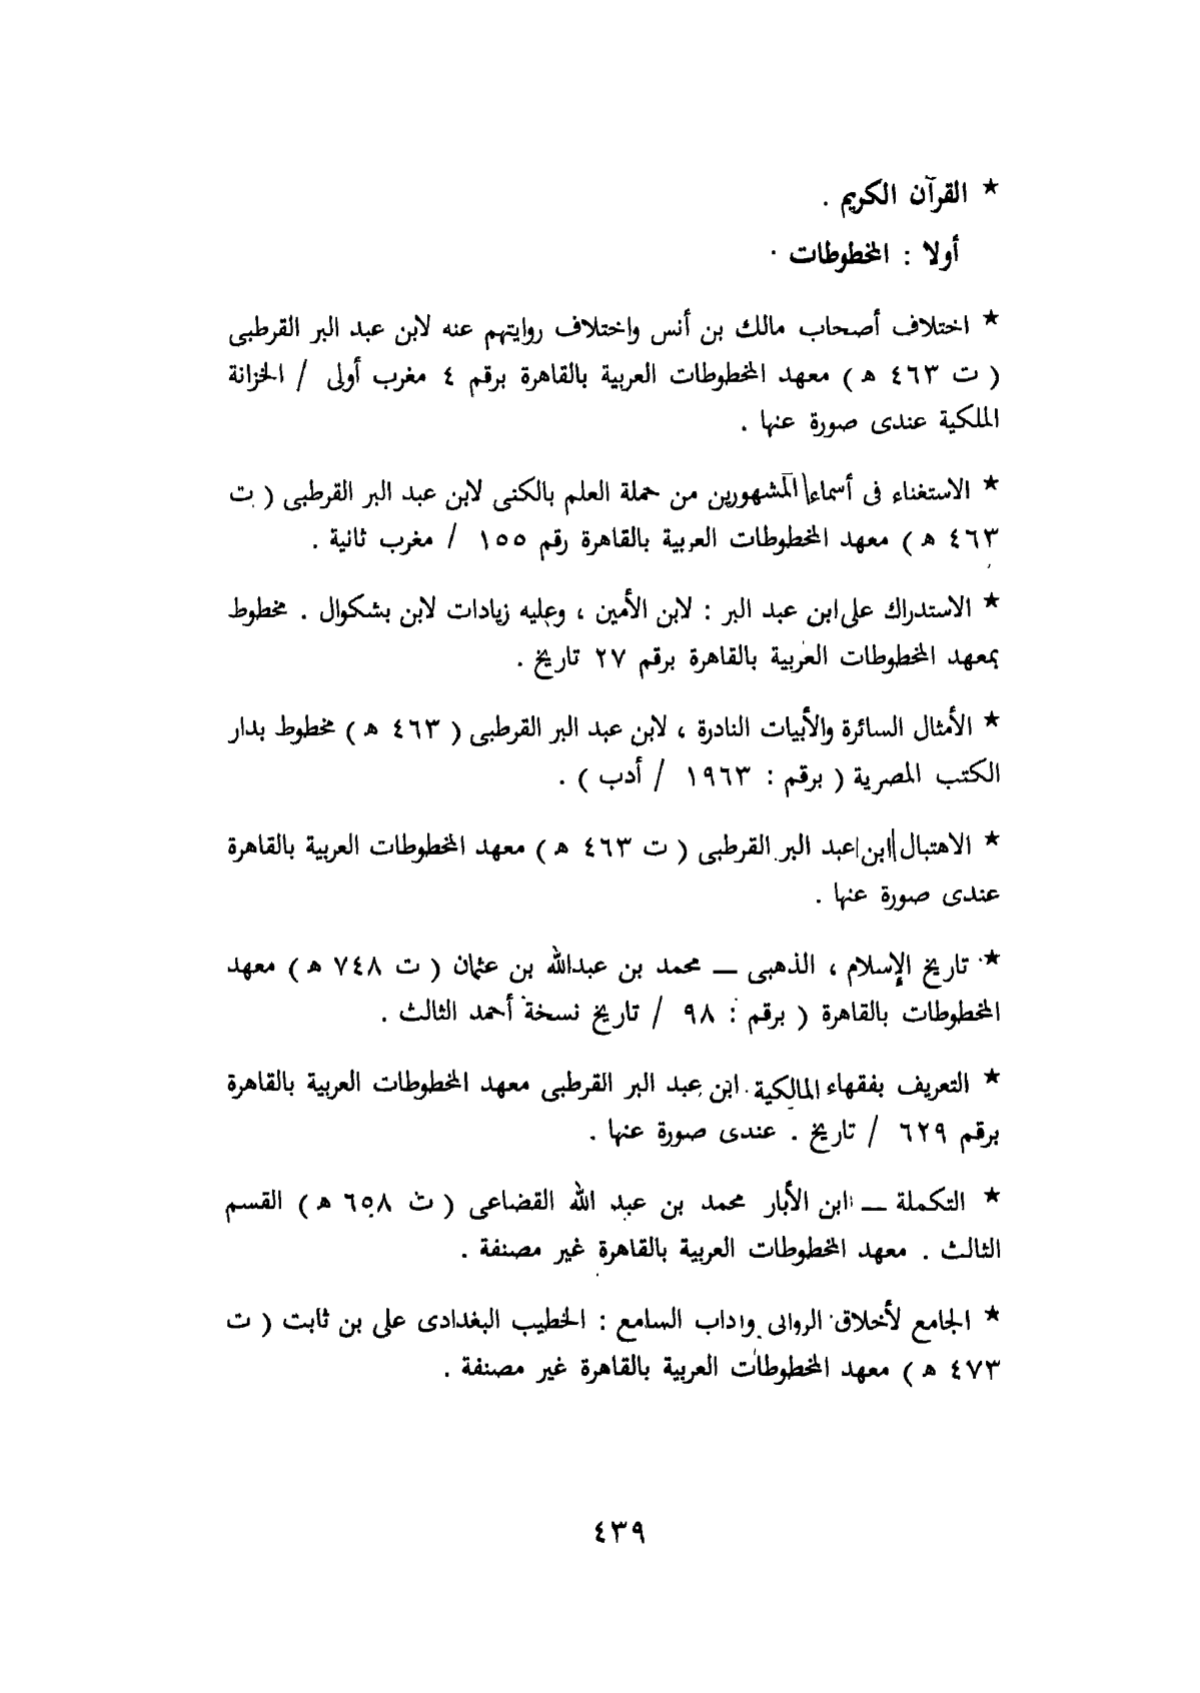 ★ القرآن الكريم .
أولا : المخطوطات .
★ اختلاف أصحاب مالك بن أنس واختلاف روايتهم عنه لابن عبد البر القرطبى
( ت ٤٦٣ هـ ) معهد المخطوطات العربية بالقاهرة برقم ٤ مغرب أولى / الخزانة
الملكية عندى صورة عنها .
★ الاستغناء فى أسماء المشهورين من حملة العلم بالكنى لابن عبد البر القرطبى ( ت
٤٦٣ هـ ) معهد المخطوطات العربية بالقاهرة رقم ١٥٥ / مغرب ثانية .
★ الاستدراك على ابن عبد البر : لابن الأمين ، وعليه زيادات لابن بشكوال . مخطوط
بمعهد المخطوطات العربية بالقاهرة برقم ٢٧ تاريخ .
★ الأمثال السائرة والأبيات النادرة ، لابن عبد البر القرطبى ( ٤٦٣ هـ ) مخطوط بدار
الكتب المصرية ( برقم : ١٩٦٣ / أدب ) .
★ الاهتبال ابن عبد البر القرطبى ( ت ٤٦٣ هـ ) معهد المخطوطات العربية بالقاهرة
عندى صورة عنها .
★ تاريخ الإسلام ، الذهبى ــ محمد بن عبدالله بن عثمان ( ت ٧٤٨ هـ ) معهد
المخطوطات بالقاهرة ( برقم : ٩٨ / تاريخ نسخة أحمد الثالث .
★ التعريف بفقهاء المالكية ابن عبد البر القرطبى معهد المخطوطات العربية بالقاهرة
برقم ٦٢٩ / تاريخ . عندى صورة عنها .
★ التكملة ــ ابن الأبار محمد بن عبد الله القضاعى ( ت ٦٥٨ هـ ) القسم
الثالث . معهد المخطوطات العربية بالقاهرة غير مصنفة .
★ الجامع لأخلاق الروالى واداب السامع : الخطيب البغدادى على بن ثابت ( ت
٤٧٣ هـ ) معهد المخطوطات العربية بالقاهرة غير مصنفة .
٤٣٩